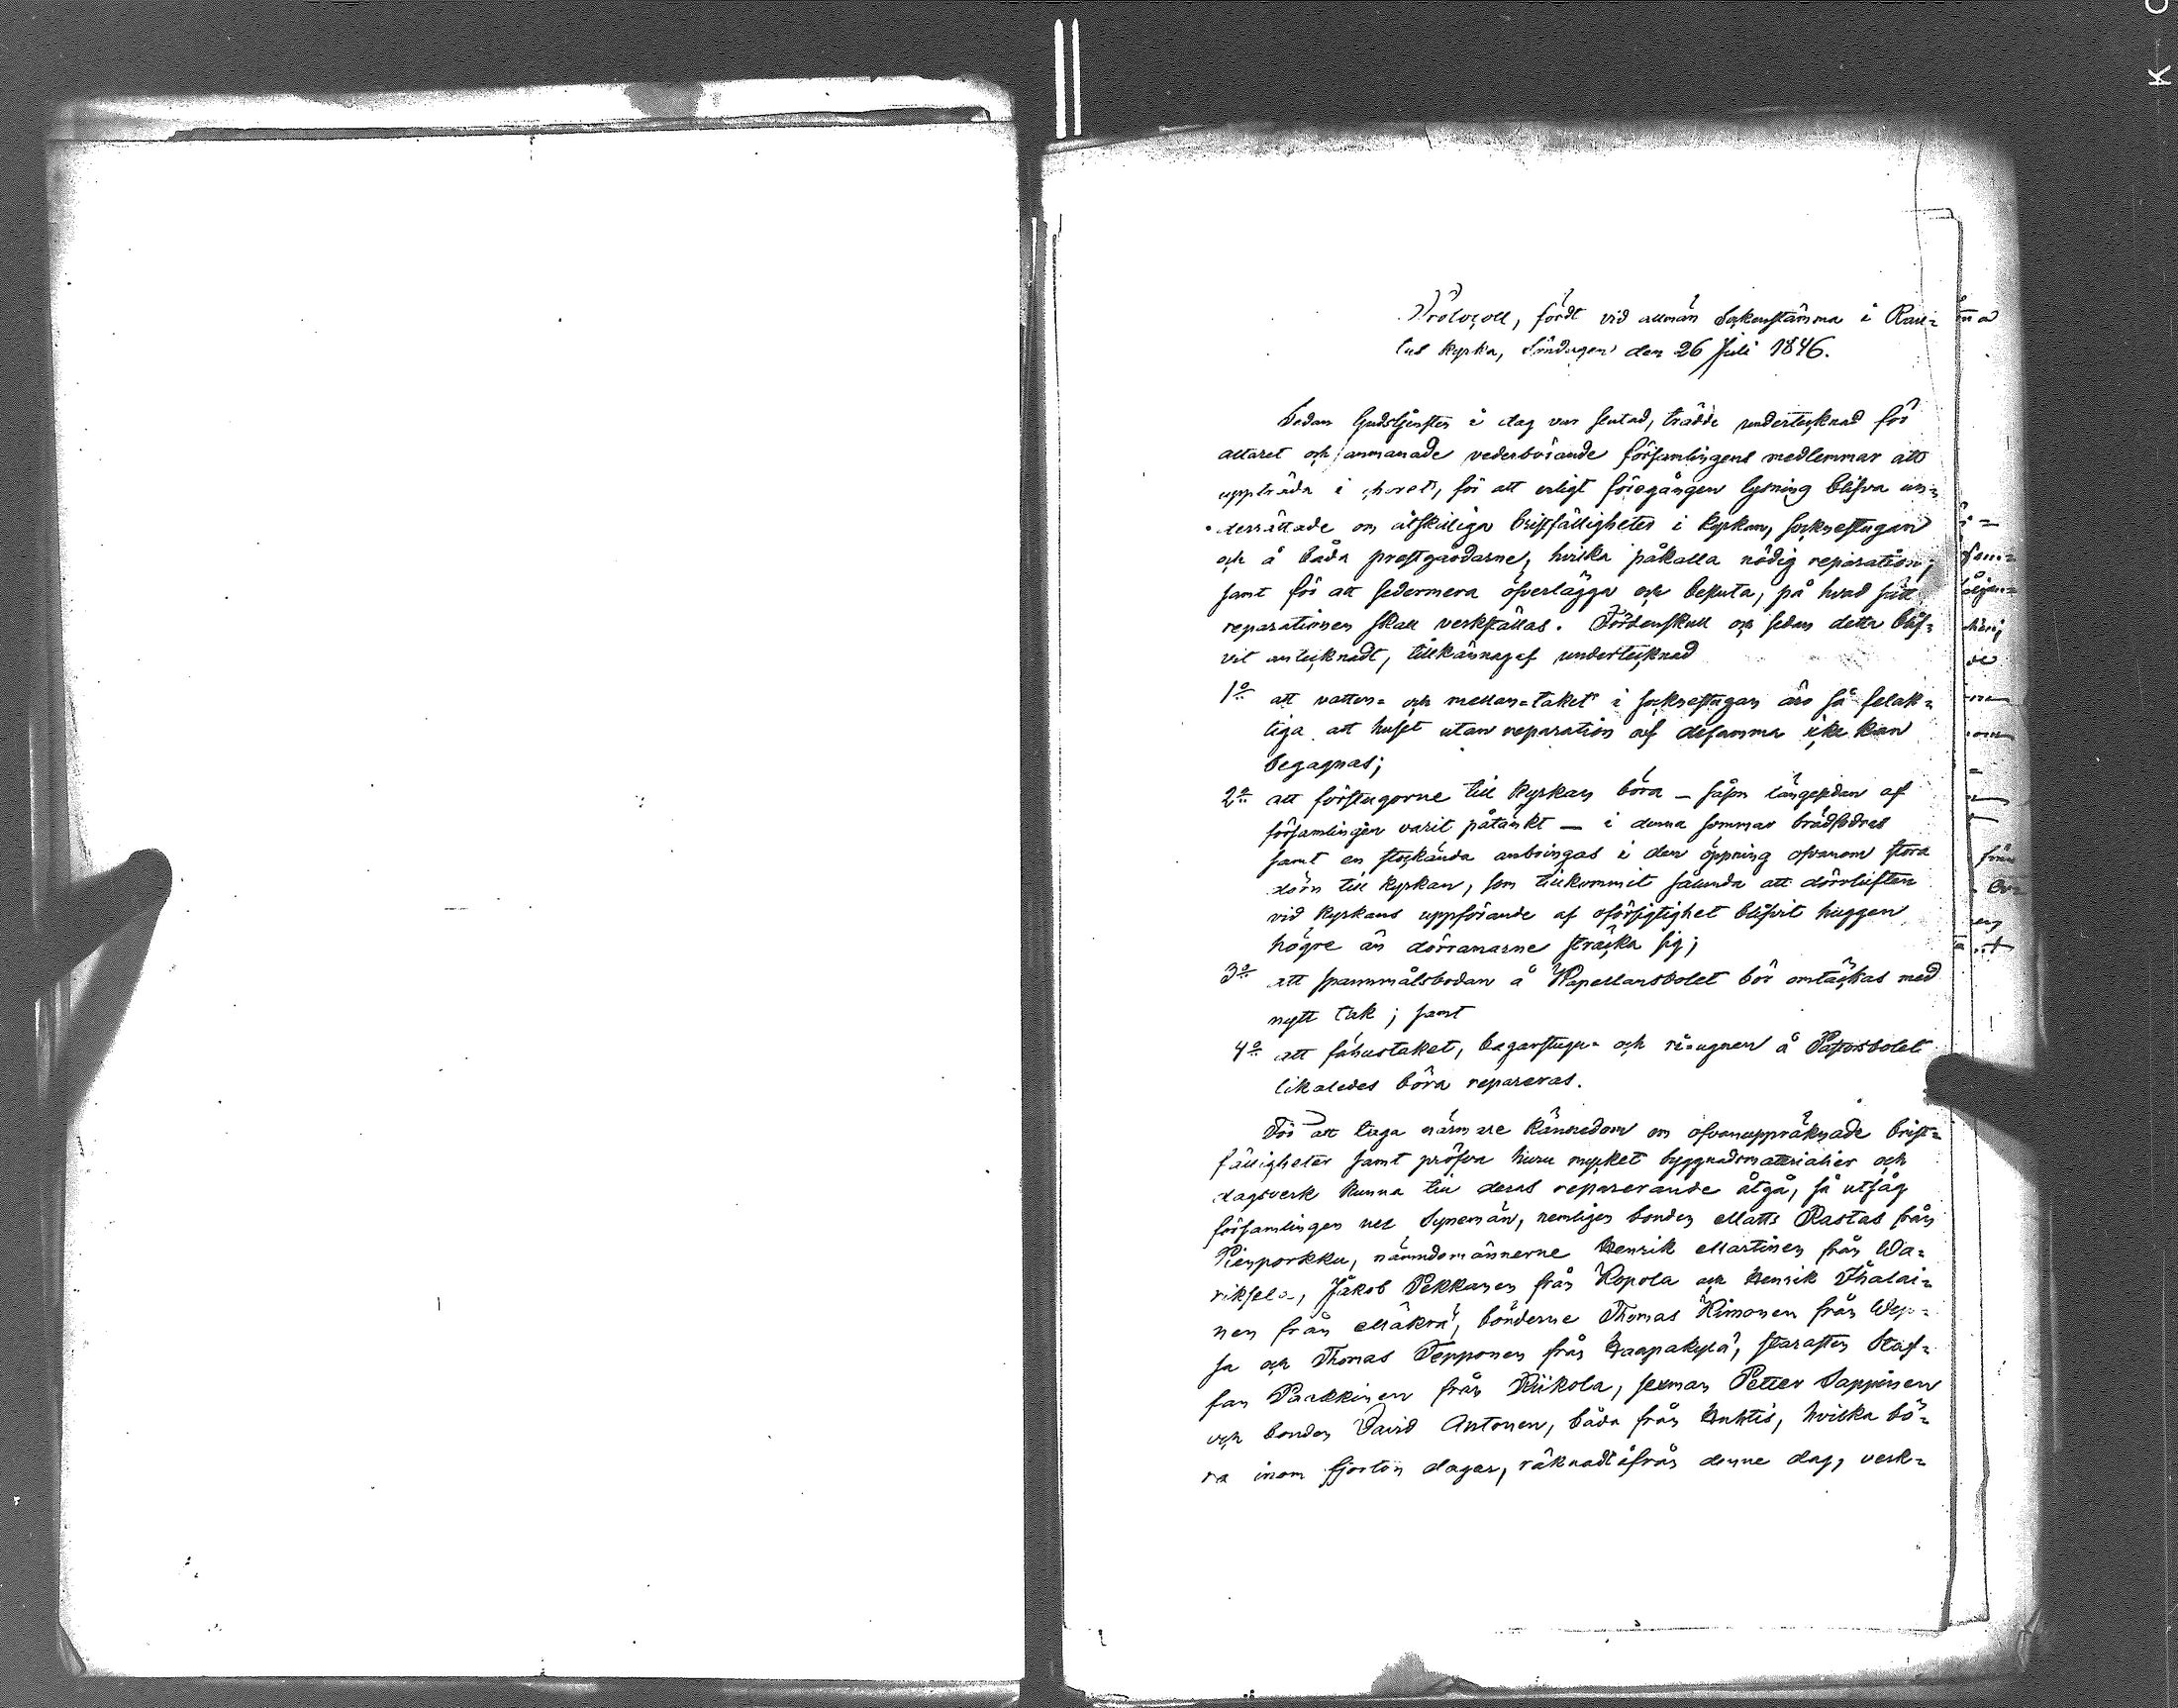 Protocoll, fördt vid allmän Sockenstämma i Rau-
tus kyrka, Söndagen den 26 Juli 1846.
Sedan Gudstjensten i dag var slutad, trädde undertecknad för
altaret och anmanade vederbörande församlingens medlemmar att
uppträda i choret, för att enligt föregången lysning blifva un-
derrättade om åtskilliga bristfälligheter i kyrkan, sockenstugan
och å båda prestgårdarne, hvilka påkalla nödig reparation;
samt för att sedermera öfverlägga och besluta, på hvad sätt
reparationen skall verkställas. Fördenskull och sedan detta blif-
vit antecknadt, tillkännagaf undertecknad
1o att vatten- och mellan-taket i sockenstugan äro så felak-
tiga att huset utan reparation af desamma icke kan
begagnas;
2o att förstugorne till kyrkan böra — såsom längesedan af
församlingen varit påtänkt — i denna sommar brädfodras
samt en stockända anbringas i den öppning ofvanom stora
dörn till kyrkan, som tillkommit sålunda att dörrluften
vid kyrkans uppförande af oförsigtighet blifvit huggen
högre än dörramarne sträcka sig;
3o att spannmålsbodan å Kapellansbolet bör omtäckas med
nytt tak; samt
4o att fähustaket, bagarstugu- och ri-ugnen å Pastorsbolet
likaledes böra repareras.
För att taga närmare kännedom om ofvanuppräknade brist-
fälligheter samt pröfva huru mycket byggnadsmaterialier och
dagsverk kunna till deras reparerande åtgå, så utsåg
församlingen till Synemän, nemligen bonden Matts Rastas från
Pienporkku, nämndemännerne Henrik Martinen från Wa-
riksela, Jakob Pekkanen från Kopola och Henrik Ihalai-
nen från Mäkrä, bönderne Thomas Kimonen från Wep-
sa och Thomas Tepponen från Haapakylä, starasten Staf-
fan Parkkinen från Riikola, sexman Petter Sappinen
och bonden David Antonen, båda från Huhtis, hvilka bö-
ra inom fjorton dagar, räknadt ifrån denne dag, verk-